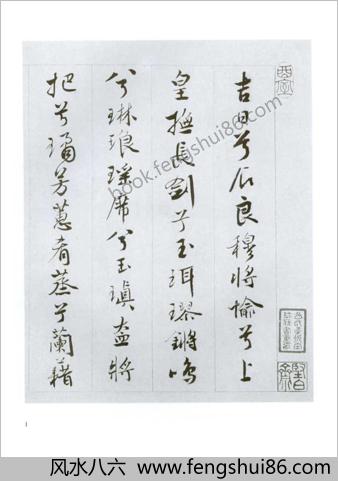 吉日兮辰良穆將愉兮上
皇撫長劍兮玉珥璆鏘鳴
兮琳琅瑤席兮玉瑱盍將
把兮瓊芳蕙肴蒸兮蘭藉
book.fengshui86.com
1
风水八六 www.fengshui86.com